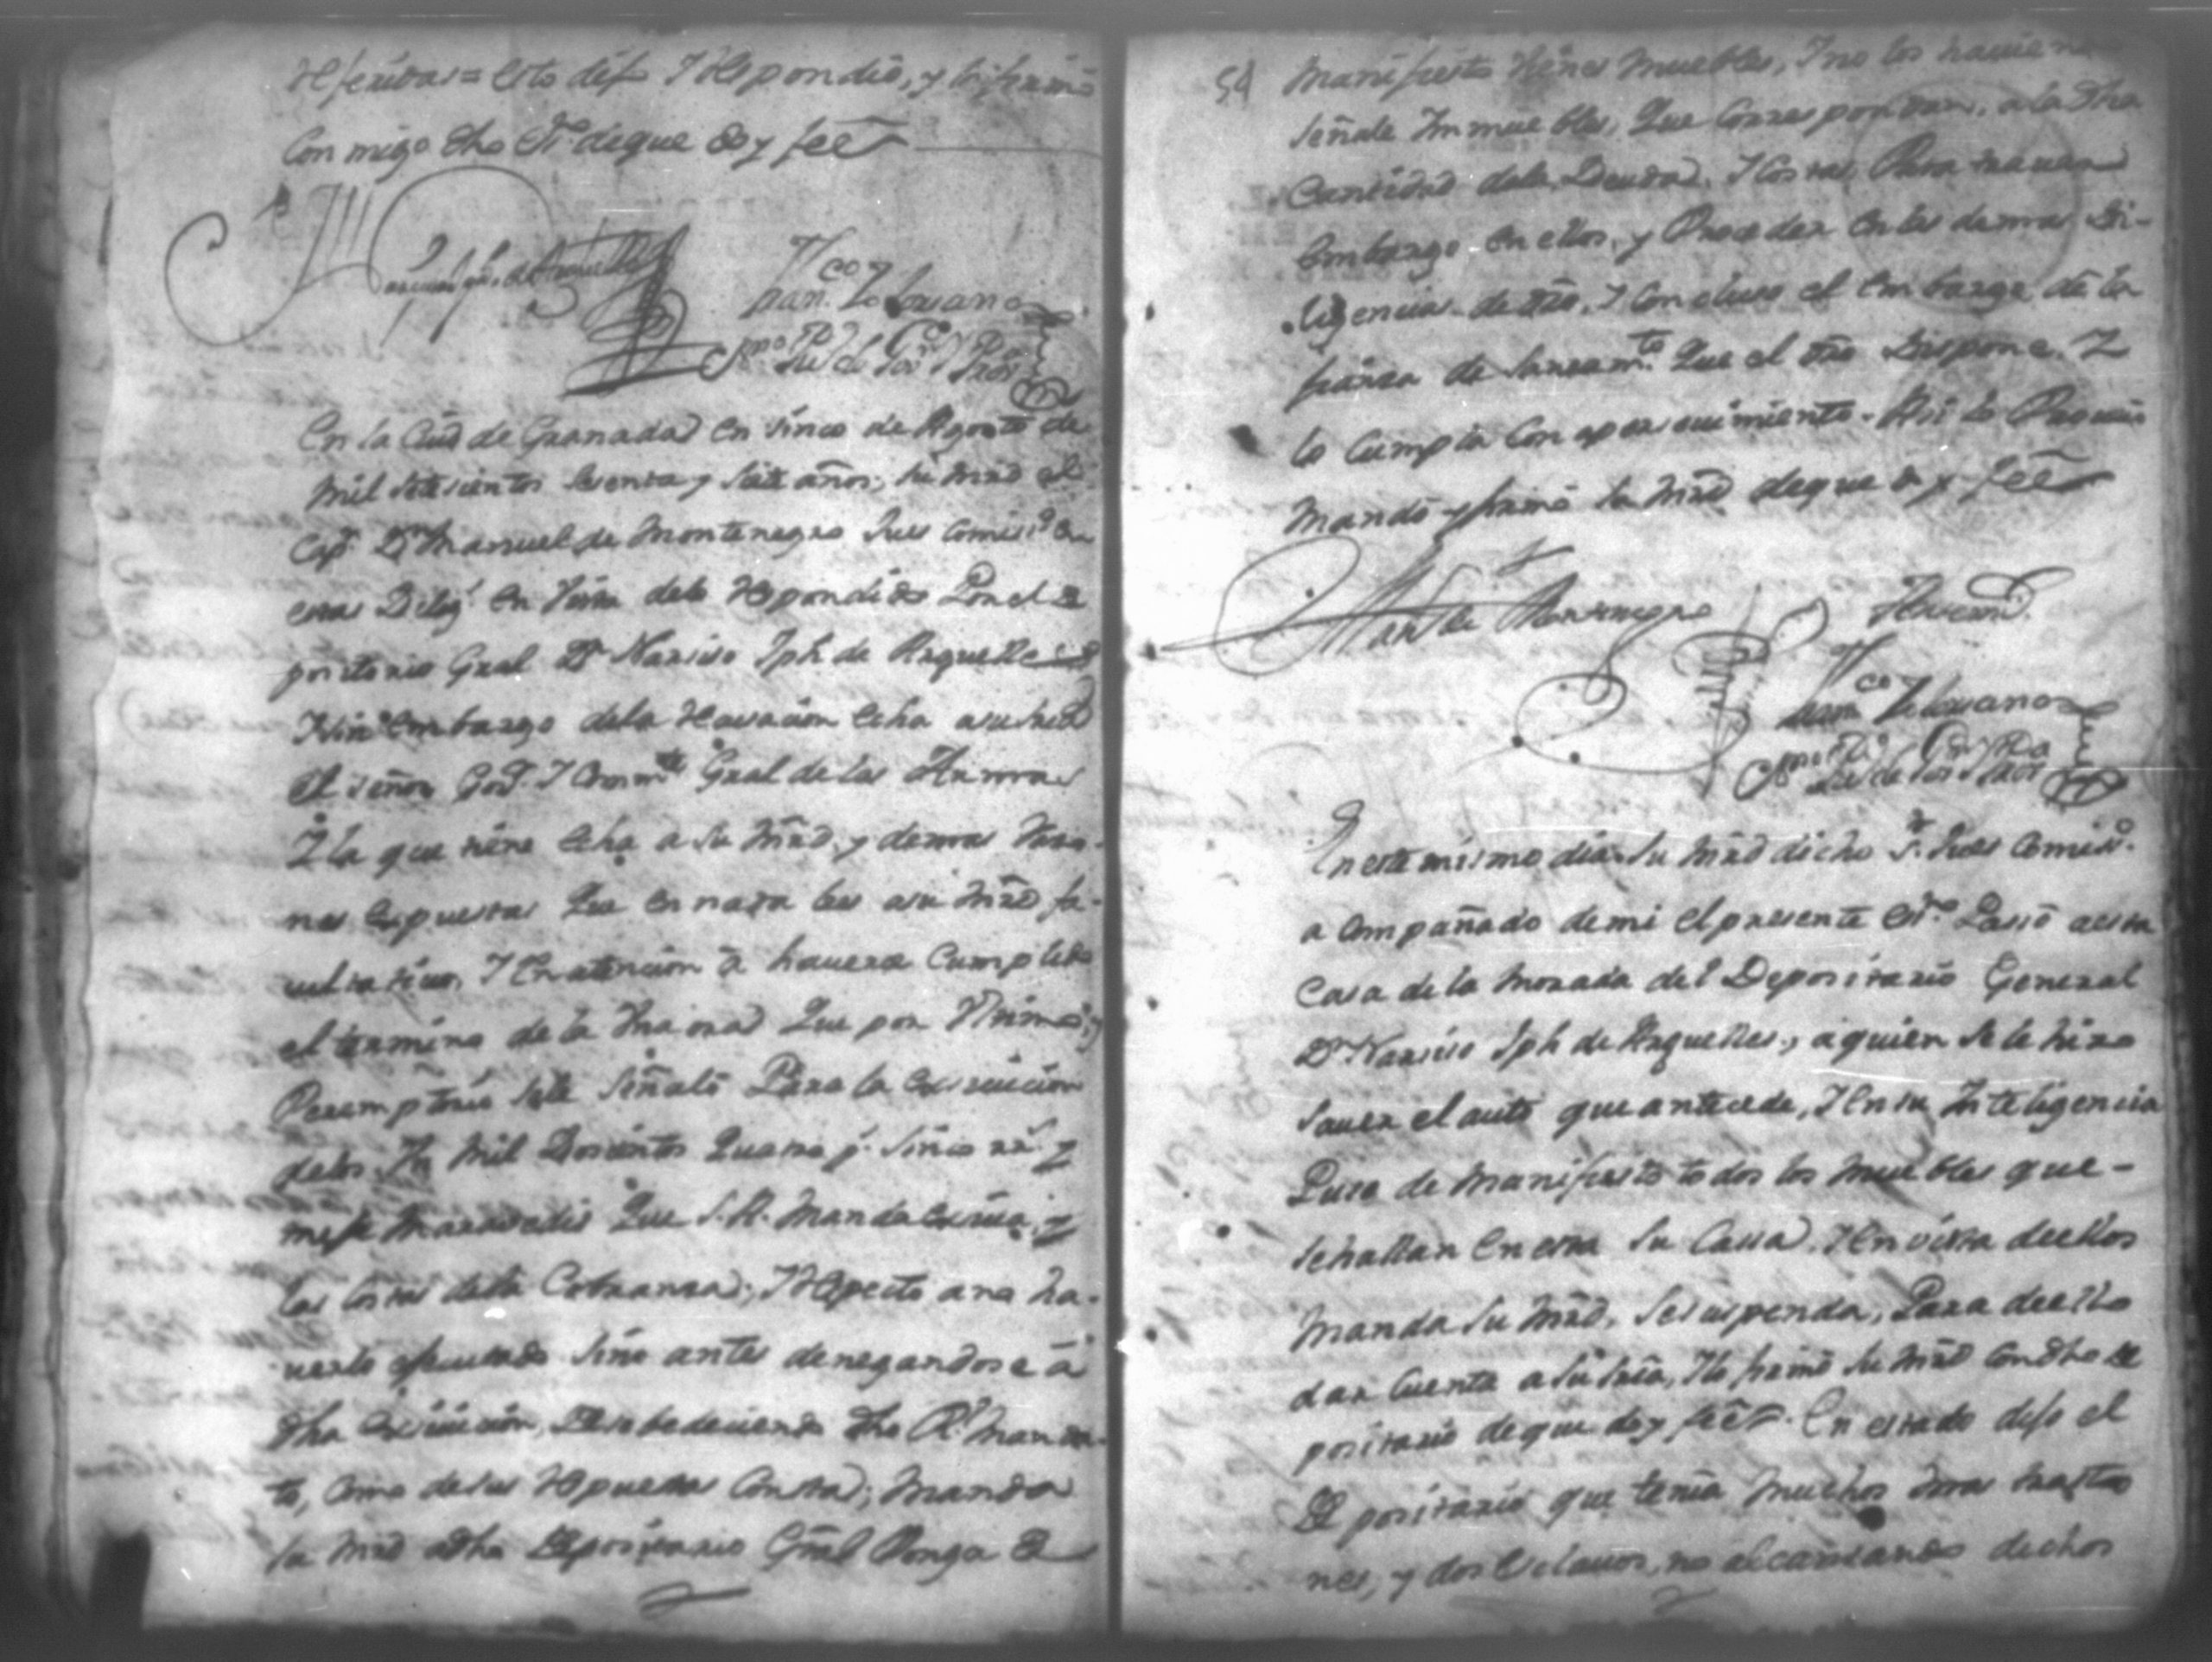 referidas = esto dijo Y Respondio, y lo firmó
Con migo dho Sr. de que doy feé
Narciso Jph. de Arguelles
Franco. Solorsano
Ssmo. Puco. de Govr. y Rl.
En la Ciud de Granada en sinco de Agosto de
mil setesientos sesenta y siete años; su mrd el
Capn. Dn Manuel de Montenegro Jues Comisso. en
estas Diligs. en vista delo Respondido Por el De
positario Gral Dn Narsiso Jph de Arguelles
Y sin embargo dela Recusacion echa a su mrd
el señor Govr. Y Comte. Gral de las Armas
Y la que tiene echa a su Mrd, y demas Raso-
nes Expuestas Que en nada les a su mrd fa-
cultativo, Y En atencion â haverse Cumplido
el termino de la Que por Ultimo, y
Peremptorio sele Señaló Para la exsivicion
delos Un Mil Dosientos Quarenta y Sinco rrs. y
maravedis Que S. A. Manda exsiva, y
las Costas dela Cobransa; Y Respecto a no ha-
verlo efectuado Sino antes denegandose â
dha exsivicion, Desobedeciendo dho Rl. Manda-
to, Como de sus Respuestas Consta; Manda
su Mrd a dho Depositario Grãl Ponga De
54
Manifiesto vienes Muebles, Y no los haviendo
señale Ymmuebles, Que Correspondan, a la dha
Cantidad dela Deuda, Y Costas Para haser
Embargo en ellos, y Proceder en las demas Di-
ligencias de dro, Y Concluso el Embargo, dê la
fianza de Saneamto. Que el dro Dispone. Y
lo Cumpla Con apersevimiento. Asi lo Proveio
Mando y firmó su Mrd, de que doy feé
Man. de Montenegro
Franco. Solorsano
Ssmo. Puco. de Govr. y Rl.
En este mismo dia Su Mrd dicho Sr. Jues Comisso.
a Compañado de mi el presente Esno. Passó a esta
Casa de la Morada del Depositario General
Dn Narsiso Jph de Arguelles, a quien se le hizo
saver el auto que antecede, Y En su Ynteligencia
Puso de Manifiesto todos los Muebles que-
se hallan en esta Su Cassa, Y En vista de ellos
Manda Su Mrd, se suspenda, Para de ello
dar Cuenta a Su Sria, Y lo firmó Su Mrd Con dho De
positario de que doy feé. En estado dijo el
De positario que tenia Muchos mas trasto
nes, y dos Esclavos, no alcansando dichos